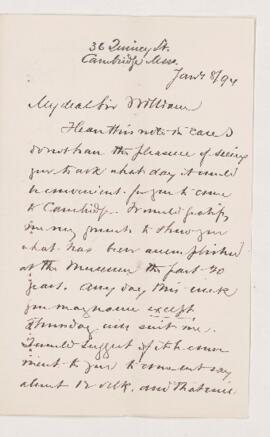 36 Quincy St.
Cambridge Mass.
Jany 8/94
My dear Sir William
I leave this note in case I
do not have the pleasure of seeing
you to ask what day it would
be convenient for you to come
to Cambridge. It would gratify
me very much to show you
what has been accomplished
at the Museum the past 20
years. Any day this week
you may name except
Thursday will suit me.
I would suggest if it is conve
nient to you to come out say
about 12 o'clk. and that will